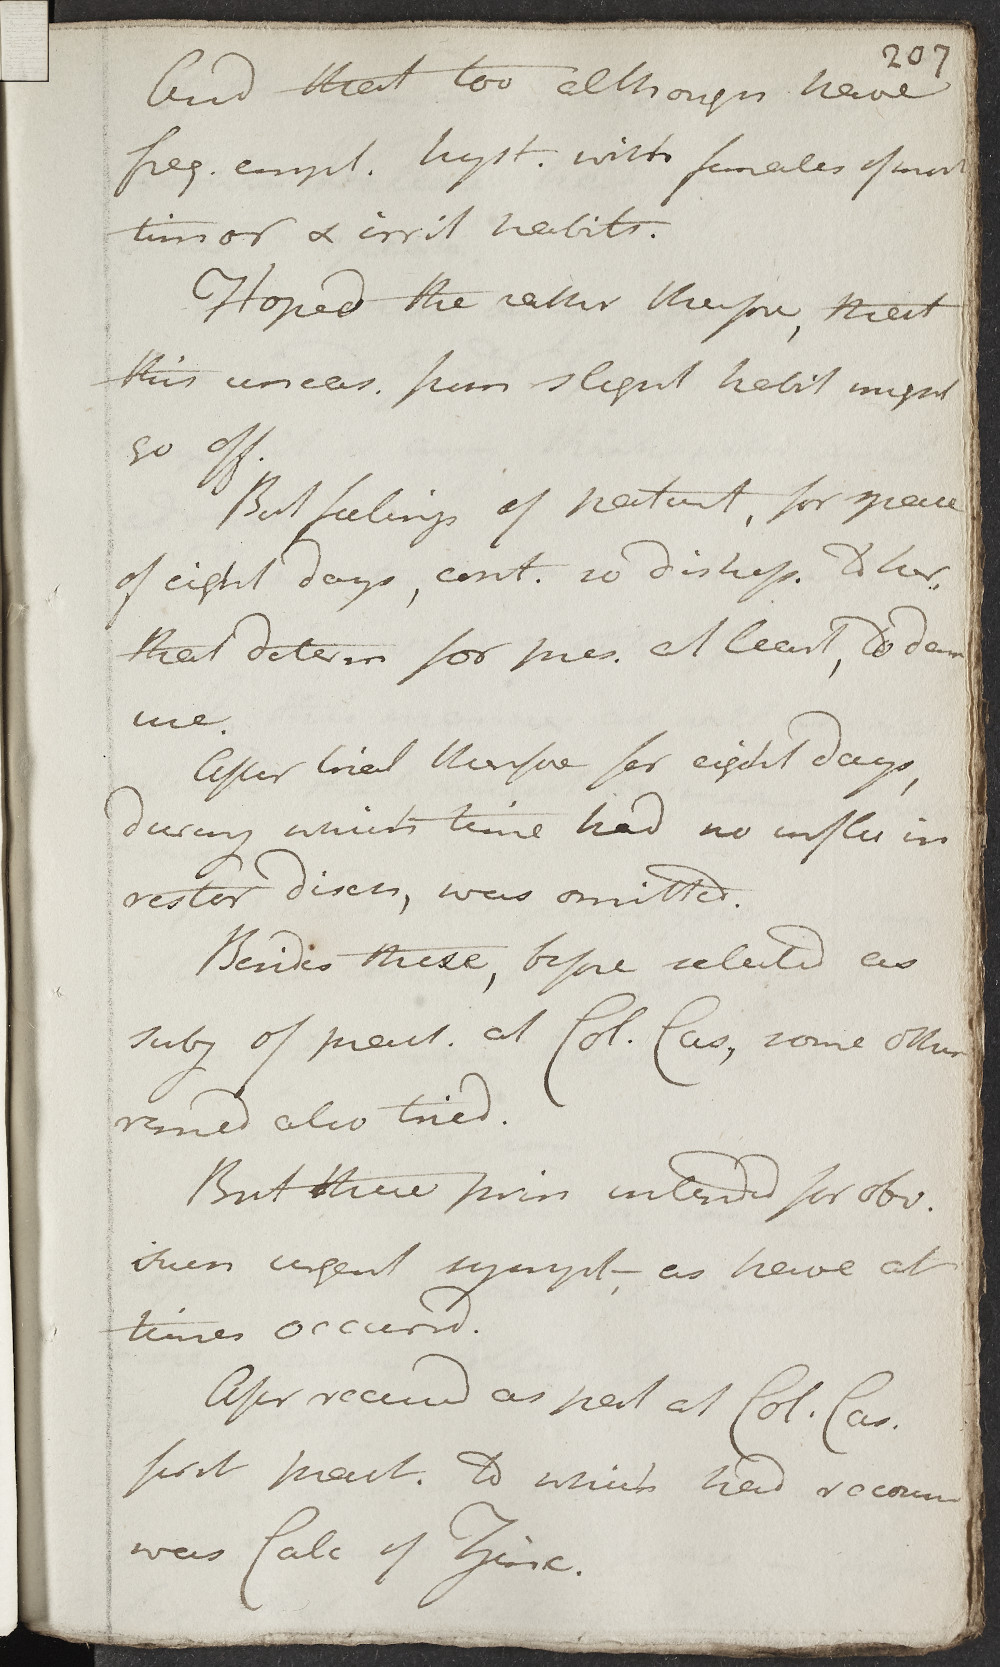 207
And that too although have
freq. empl. hyst. with females of most
timor & irrit habits.
Hoped the rather therefore, that
this uneas. from slight habit might
go off.
But feelings of patient, for space
of eight days, cont. so distress. to her,
that determ for pres. at least, to
me.
After trial therefore for eight days,
during which time had no influ in
restor disch, was omitted.
Besides these, before selected as
subj of pract. at Col. Cas, some other
remed also tried.
But these prin intended for obv.
urgent sympt, as have at
times occurred.
After received as pat at Col. Cas.
first pract. to which had recour
was Calc of Zinc.